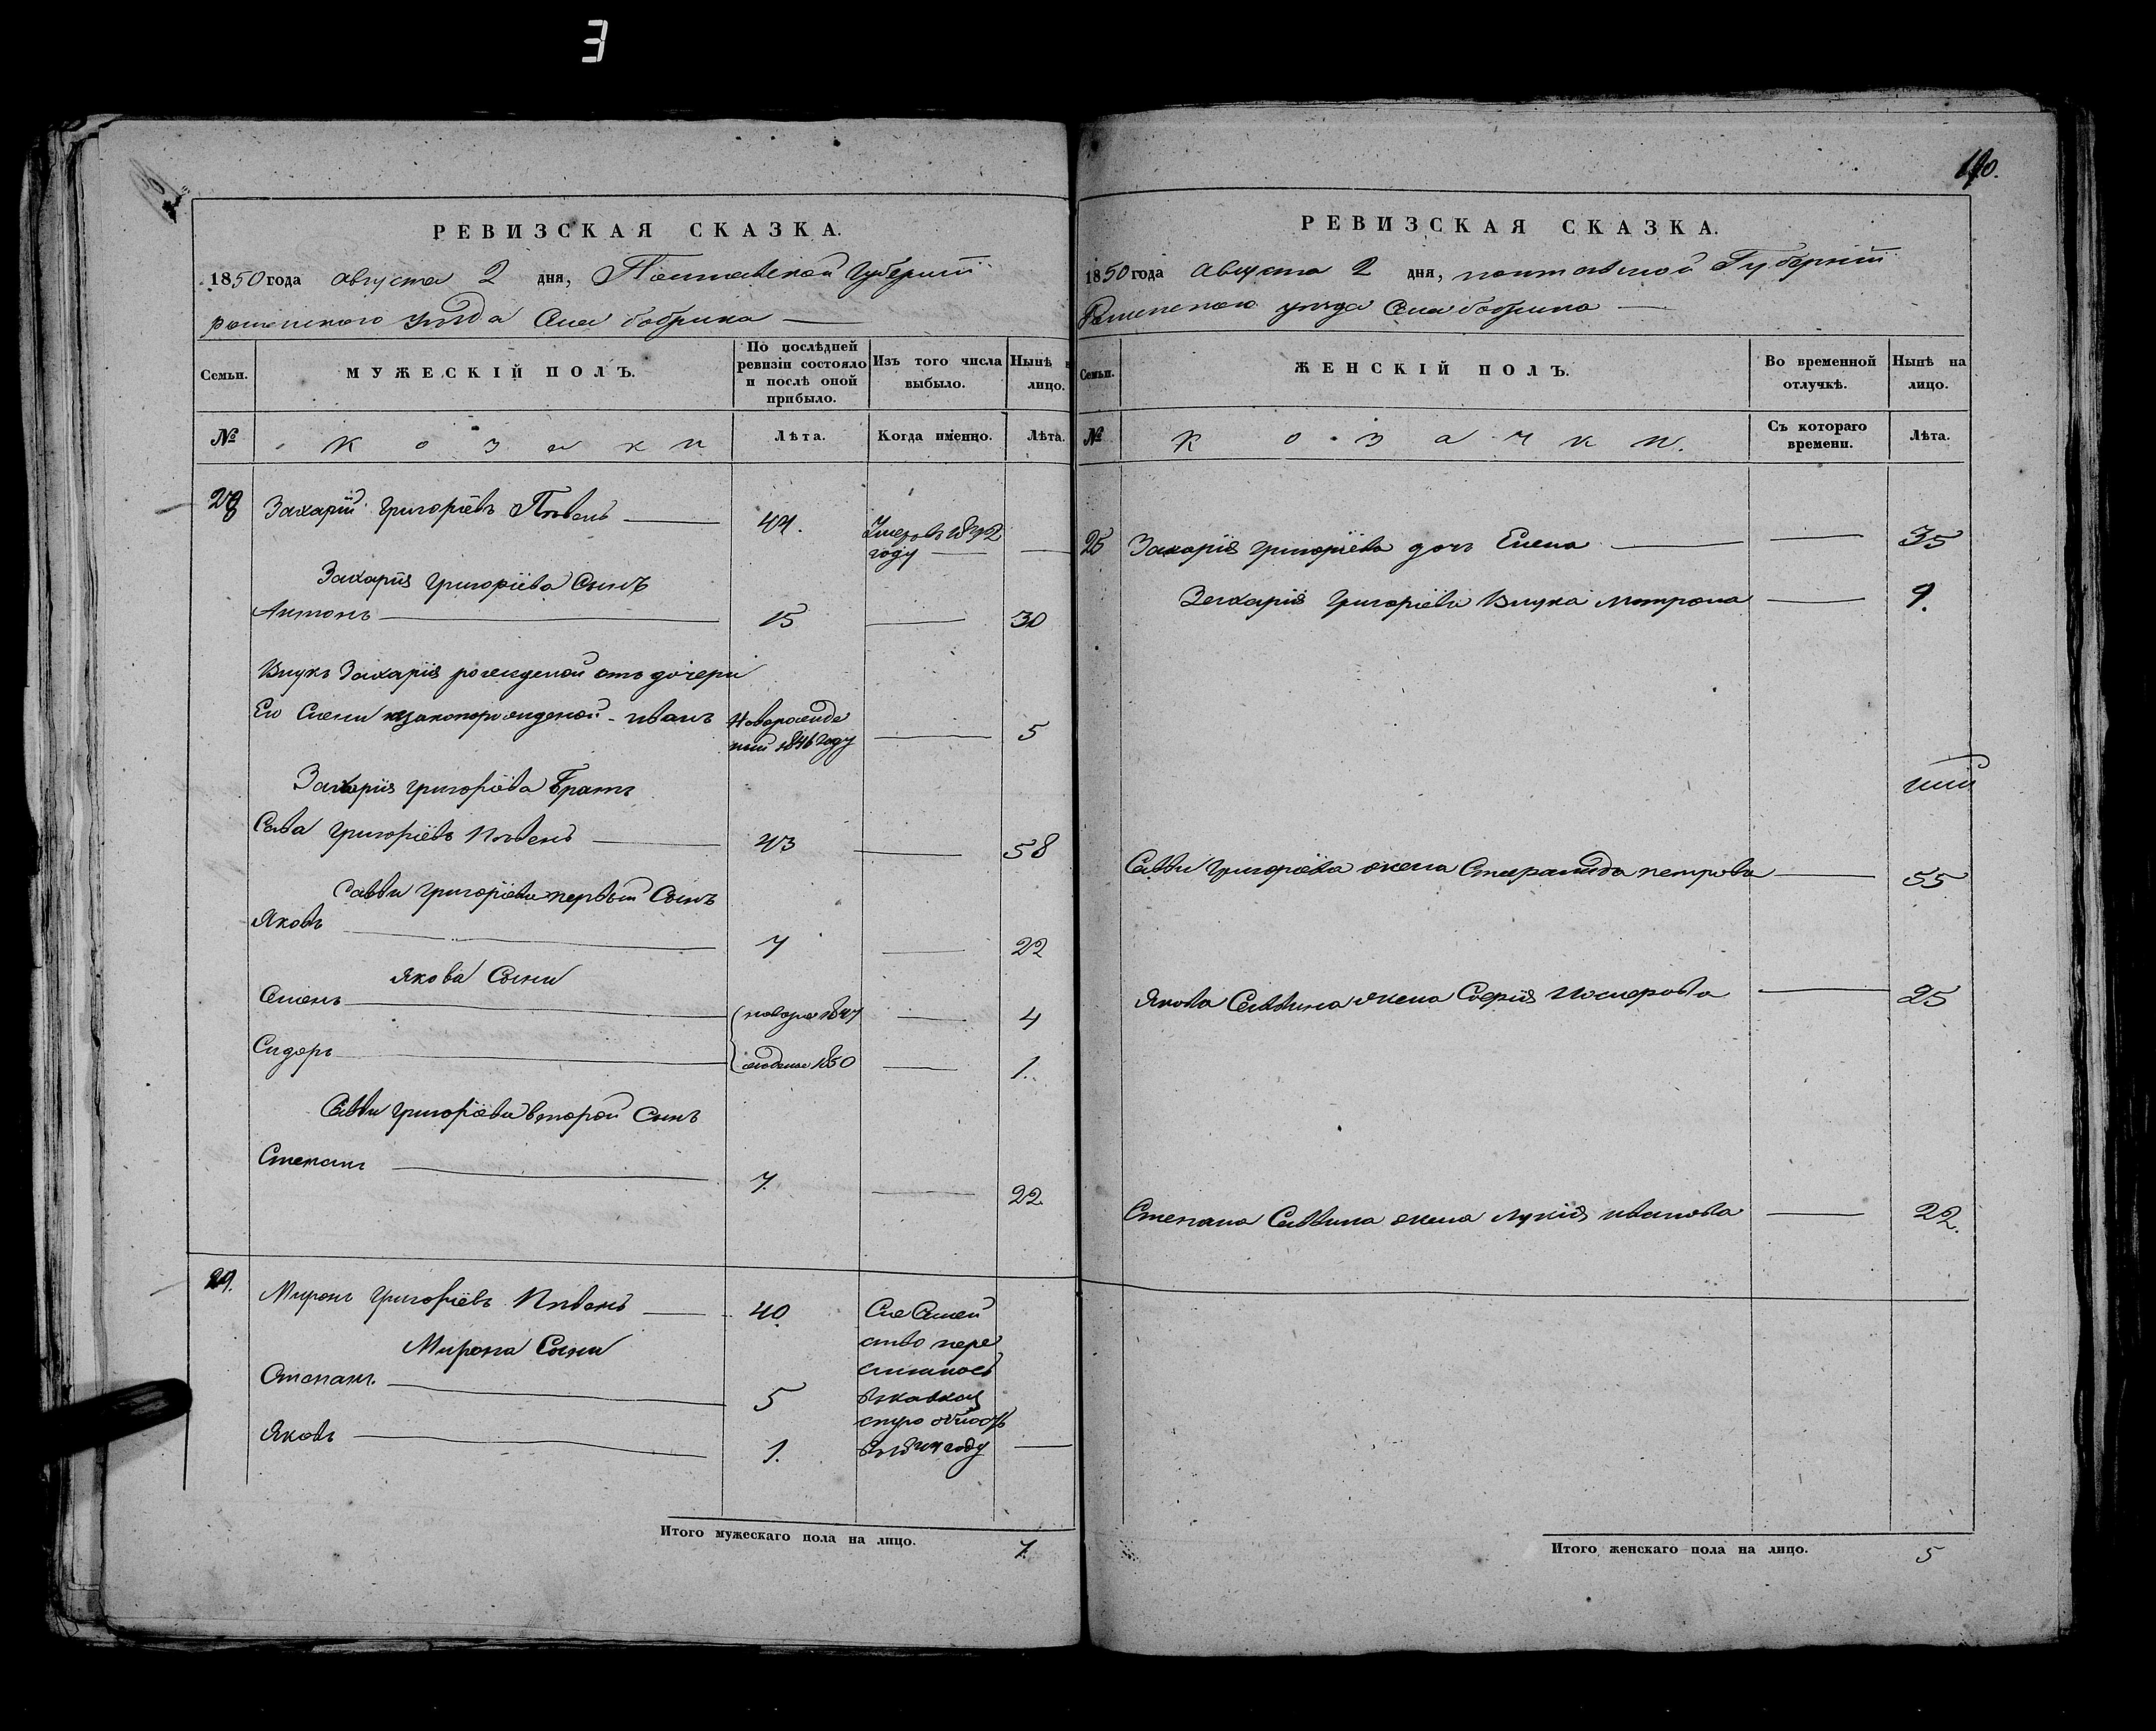 E
РЕВИЗСКАЯ СКАЗКА.
1850 года августа 2 дня, Полтавской Губерніи
роменского уезда Села бобрика
Семьи.
МУЖЕСКІЙ ПОЛЪ.
По послѣдней ревизіи состояло и послѣ оной прибыло.
Изъ того числа выбыло.
Нынѣ на лицо.
№
Козаки
Лѣта.
Когда именно.
Лѣта.
28
Захарій Григоріевъ Пѣвень
44.
Умеръ въ 1842
году
Захарія Григоріева Сынъ
Антонъ
15
30
Внукъ Захарія рожденой отъ дочери
Его Елени незаконорожденой - иванъ
Новорожде
ний 1846 году
5
Захарія Григоріева Братъ
Сава Григоріевъ Пѣвень
43
58
Савви Григоріева первый Сынъ
Яковъ
7
22
Якова Сыни
Семенъ
новоро 1847
4
Сидоръ
жденые 1850
1.
Савви Григоріева второй Сынъ
Степанъ
7.
22.
29.
Миронъ Григоріевъ Пѣвень
40.
Сие Семей
ство пере
Мирона Сыни
Степанъ.
5
Яковъ
1.
году
Итого мужескаго пола на лицо.
7.
190.
РЕВИЗСКАЯ СКАЗКА.
1850 года Августа 2 дня, полтавской Губерніи
Роменского уезда Села бобрика
Семьи.
ЖЕНСКІЙ ПОЛЪ.
Во временной отлучкѣ.
Нынѣ на лицо.
№
Козачки.
Съ котораго времени.
Лѣта.
Захарія Григоріева дочь Елена
35
Захарія Григоріева Внука Мотрона
9.
Савви Григоріева жена Степанида петрова
55
Якова Саввина жена Софія
25
Степана Саввина жена Лукія иванова
22.
Итого женскаго пола на лицо.
5